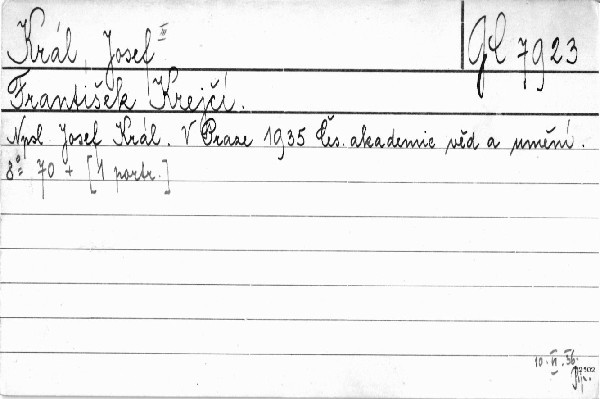 Král, Josef III
gE 7923
František Krejčí.
Npsl Josef Král. V Praze 1935 Čes. akademie věd a umění.
8° 70 + [1 portr.]
10. VI. 36.